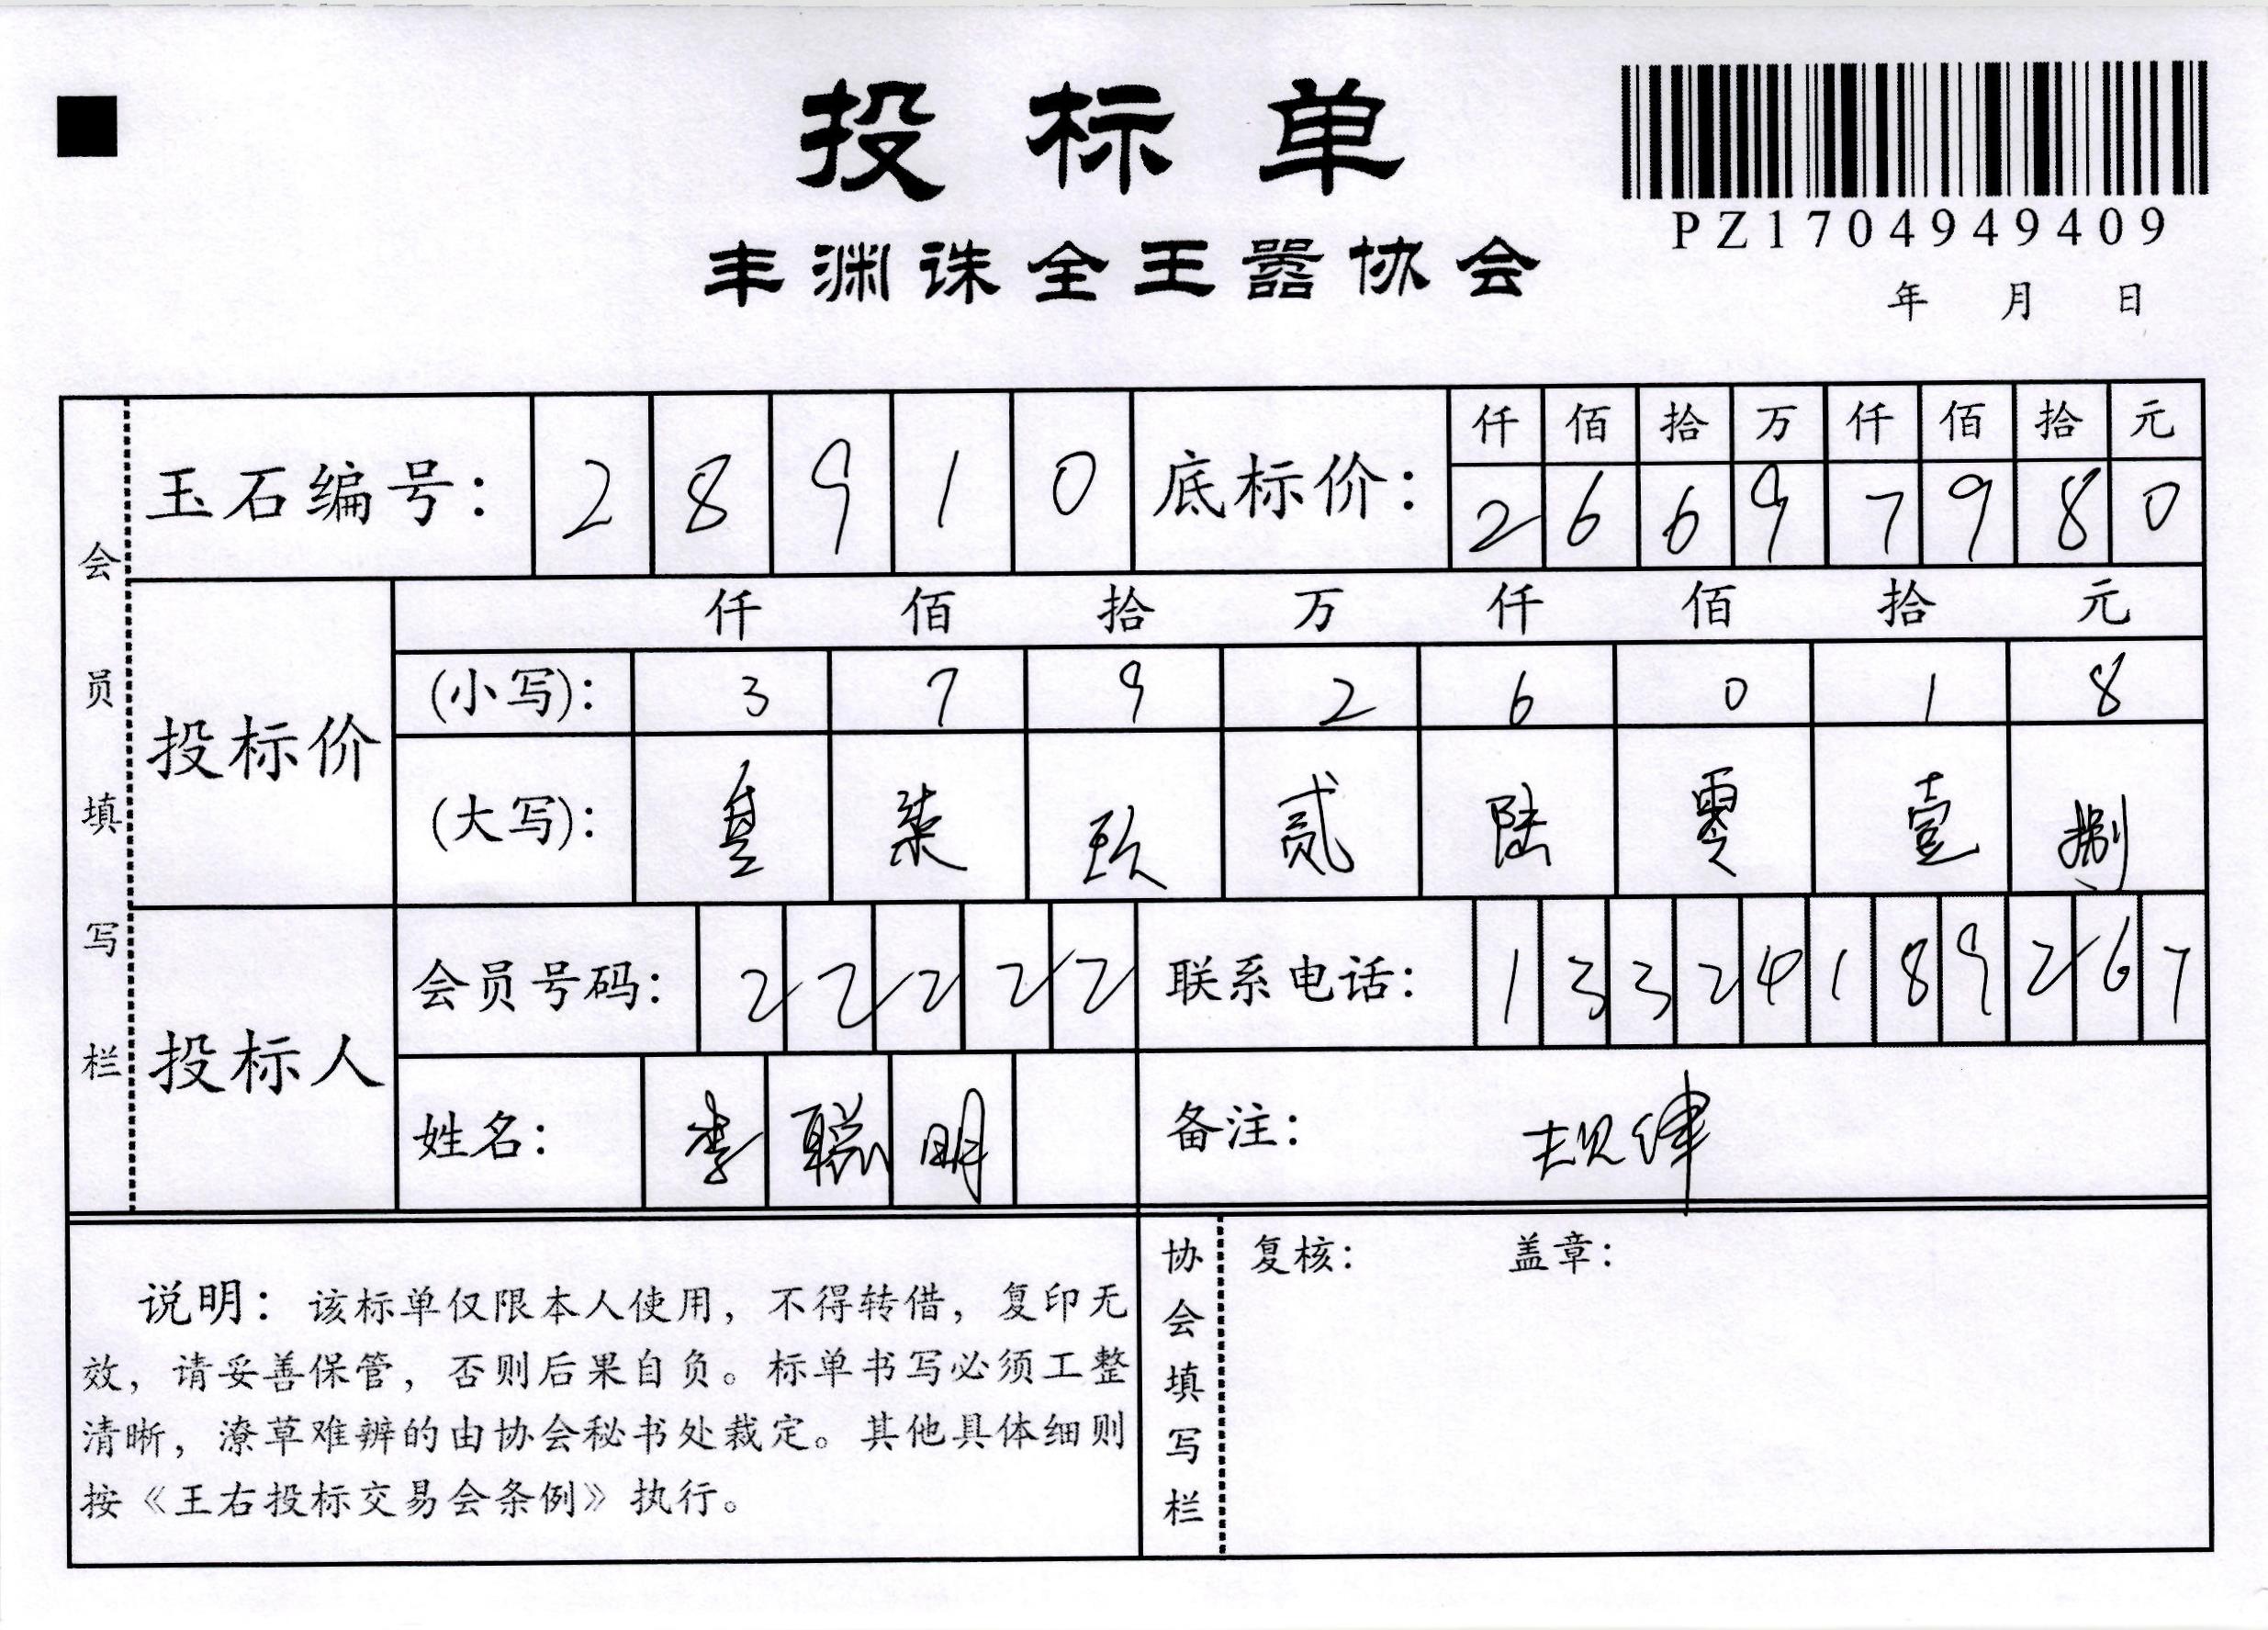 投标单
丰渊诛全王嚣协会
PZ1704949409
年 月 日
会员填写栏
玉石编号: 2 8 9 1 0
底标价: 仟 佰 拾 万 仟 佰 拾 元
2 6 6 9 7 9 8 0
投标价
仟 佰 拾 万 仟 佰 拾 元
(小写): 3 7 9 2 6 0 1 8
(大写): 叁 柒 玖 贰 陆 零 壹 捌
投标人
会员号码: 2 2 2 2 2
联系电话: 1 3 3 2 4 1 8 9 2 6 7
姓名: 李 聪 明
备注: 规律
说明:该标单仅限本人使用,不得转借,复印无
效,请妥善保管,否则后果自负。标单书写必须工整
清晰,潦草难辨的由协会秘书处裁定。其他具体细则
按《王右投标交易会条例》执行。
协会填写栏
复核: 盖章: